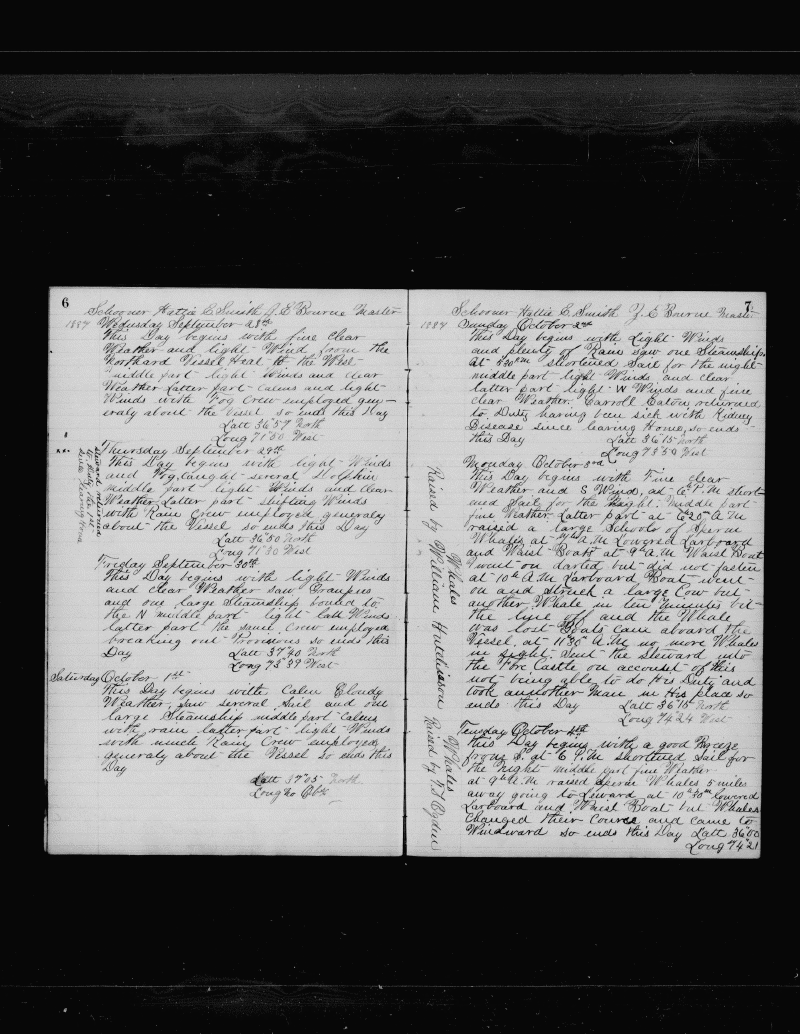 6
Schooner Hattie E. Smith J. E Bourne Master
1887 Wedusday September 28th
This Day begins with fine clear
Weather and light Wind from the
Northard Vessel Heai to the West
middle part light Winds and clear
Weather Latter part calms and light
Winds with Fog Crew employed gen-
eraly about the Vessel so ends this Day
Latt 36°57 North
Long 71°50 West
Thursday September 29th
This Day begins with light Winds
and Fog, caught several Dolphin
middle part light Winds and clear
Weather, Latter part shifting Winds
with Rain Crew employed generaly
about the Vessel so ends this Day
Latt 36°50 North
Long 71°30 West
to Duty the first
Since Leaving Home
Friday September 30th
This Day begins with light Winds
and clear Weather saw Grampus
and one large Steamship bound to
the N middle part light Latt Winds
latter part the same Crew employed
breaking out Provisions so ends this
Day Latt 37°40 North
Long 73°39 West
Saturday October 1st
This Day begins with Calm Cloudy
Weather, saw several Sail and one
large Steamship middle part Calms
with rain latter part light Winds
with much Rain Crew employed
generaly about the Vessel So ends this
Day
Latt 37°05 North
Long no Obs
7
Schooner Hattie E. Smith J. E Bourne Master
1887 Sunday October 2nd
This Day begins with Light Winds
and plenty of Rain saw one Steamship.
at 5.30 P.M shortened Sail for the night
middle part light Winds and clear
latter part light W Winds and fine
clear Weather. Carroll Eaton returned
to Duty having been sick with Kidney
Disease since leaving Home, so ends
this Day Latt 36°15 North
Long 73°50 West
Monday October 3rd
This Day begins with Fine clear
Weather and S Wind, at 6h P.M short-
ned Sail for the Night. middle part
fine Weather Latter part at 6h20 A.M
raised a large Schools of Sperm
Whales at A.M Lowered Larboard
and Waist Boats at 9h A.M Waist Boat
went on darted but did not fasten
at 10h A.M Larboard Boat went
on and struck a large Cow but
another Whale in ten minutes bit
the line off and the Whale
was lost Boats came aboard the
Vessel, at 11h30 A.M no more Whales
in sight. Sent the Steward into
the Fore Castle on account of his
not being able to do His Duty and
took annother man in His place so
ends this Day Latt 36°15 North
Long 74°24 West
Whales
Raised by William Hutchinson
Teusday October 4th
This Day begins with a good Breeze
from S. at 6 P.M. shortened Sail for
the Night middle part fine Weather
at 9h A.M raised Sperm Whales 5 miles
away going to Leward at 10h30m Lowered
Larboard and Waist Boat but Whales
changed their Cource and came to
Windward so ends this Day Latt 36°00
Long 74°21
Whales
Raised by Ogden